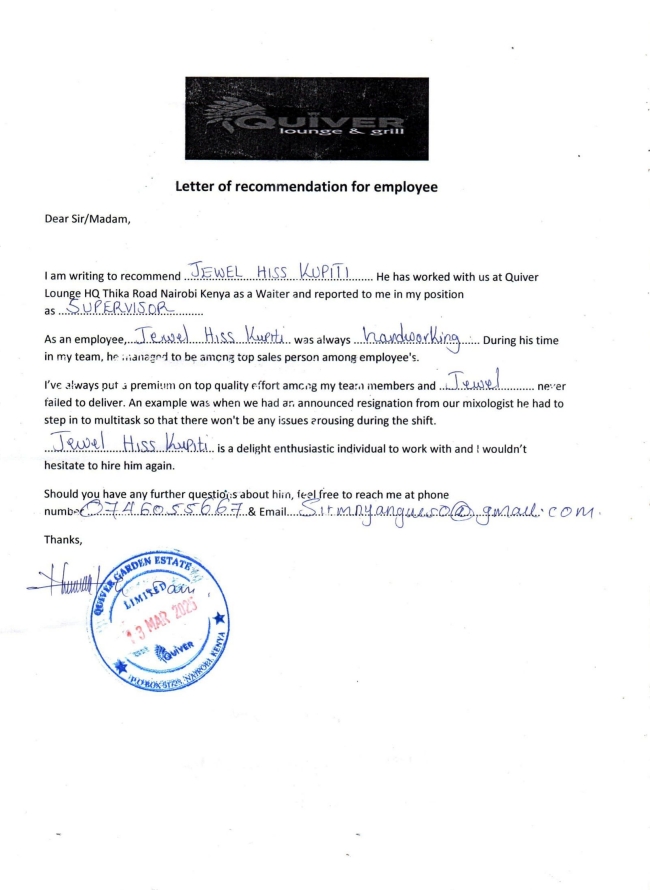 QUIVER
lounge & grill
Letter of recommendation for employee
Dear Sir/Madam,
I am writing to recommend JEWEL HISS KUPITI He has worked with us at Quiver
Lounge HQ Thika Road Nairobi Kenya as a Waiter and reported to me in my position
as SUPERVISOR
As an employee, Jewel Hiss Kupiti was always handworking During his time
in my team, he managed to be among top sales person among employee's.
I've always put a premium on top quality effort among my team members and Jewel never
failed to deliver. An example was when we had an announced resignation from our mixologist he had to
step in to multitask so that there won't be any issues arousing during the shift.
Jewel Hiss Kupiti is a delight enthusiastic individual to work with and I wouldn't
hesitate to hire him again.
Should you have any further questions about him, feel free to reach me at phone
number 0746055667 & Email @gmail.com.
Thanks,
QUIVER GARDEN ESTATE
LIMITED
13 MAR 2025
QUIVER
NAIROBI, KENYA